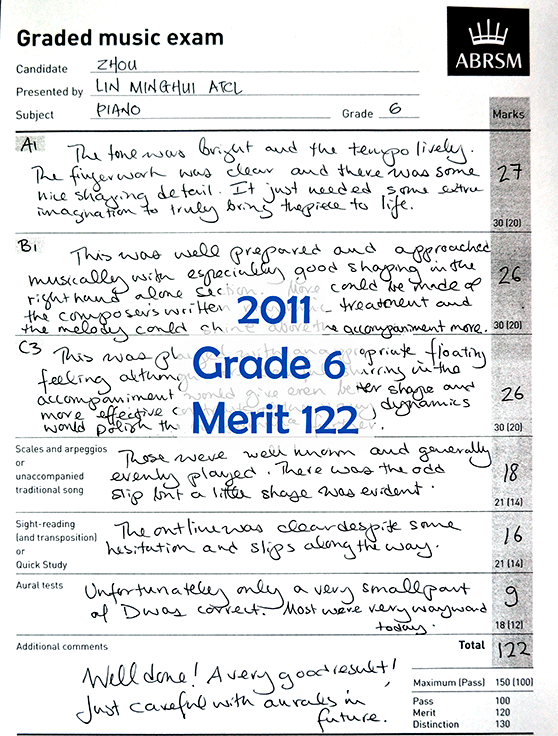 Graded music exam
ABRSM
Candidate ZHOU
Presented by LIN MINGHUI ATCL
Subject PIANO Grade 6 Marks
A1 The tone was bright and the tempo lively.
The fingerwork was clear and there was some
nice shaping detail. It just needed some extra
imagination to truly bring the piece to life.
27
30 (20)
B1 This was well prepared and approached
musically with especially good shaping in the
right hand alone section. More could be made of
the composer's written treatment and
the melody could shine above the accompaniment more.
26
30 (20)
C3 This was floating
feeling in the
accompaniment would give even better shape and
more effective dynamics
would polish the
26
30 (20)
2011
Grade 6
Merit 122
Scales and arpeggios
or
unaccompanied
traditional song
These were well known and generally
evenly played. There was the odd
slip but a little shape was evident.
18
21 (14)
Sight-reading
(and transposition)
or
Quick Study
The outline was clear despite some
hesitation and slips along the way.
16
21 (14)
Aural tests
Unfortunately only a very small part
of D was correct. Most were very wayward
today.
9
18 (12)
Additional comments
Total 122
Well done! A very good result!
Just careful with aurals in
future.
Maximum (Pass) 150 (100)
Pass 100
Merit 120
Distinction 130